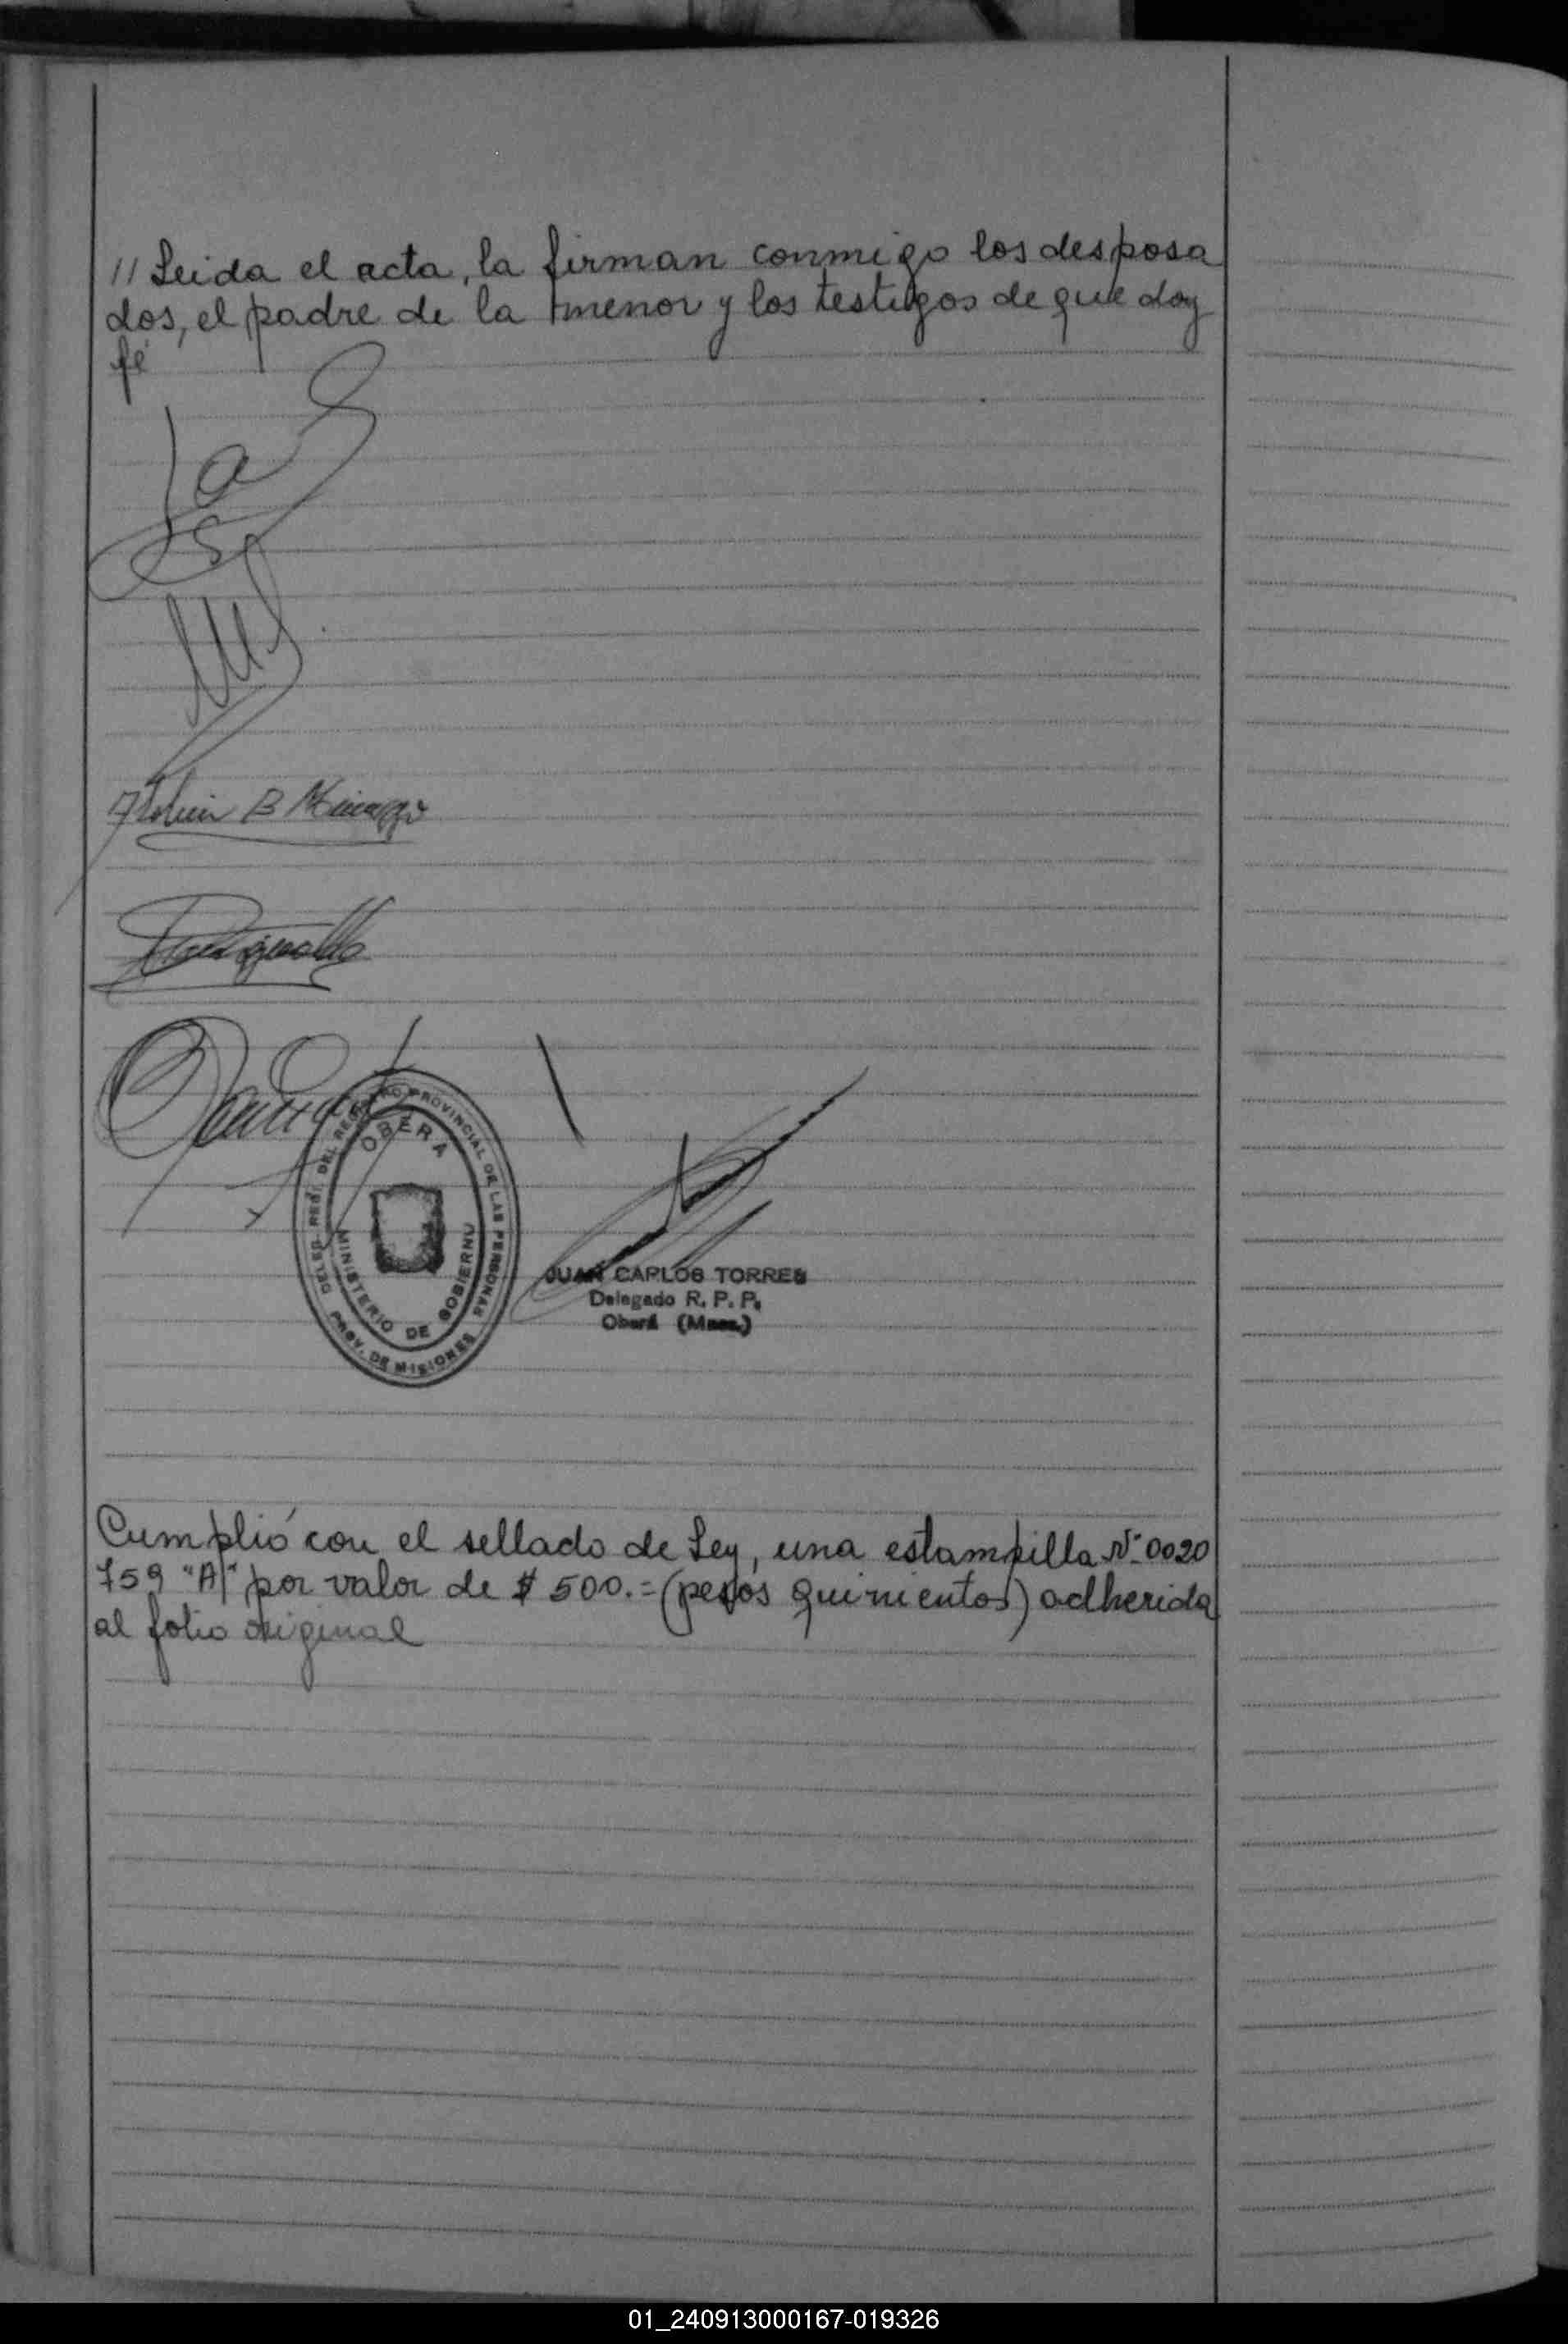 // Leida el acta, la firman conmigo los desposa
dos, el padre de la menor y los testigos de que doy
fé
DELEG. REG. DEL REGISTRO PROVINCIAL DE LAS PERSONAS
OBERA
MINISTERIO DE GOBIERNO
PROV. DE MISIONES
JUAN CARLOS TORRES
Delegado R. P. P.
Oberá (Mnes.)
Cumplió con el sellado de Ley, una estampilla Nº 0020
759 "A" por valor de $ 500.= (pesos quinientos) adherida
al folio original
01_240913000167-019326